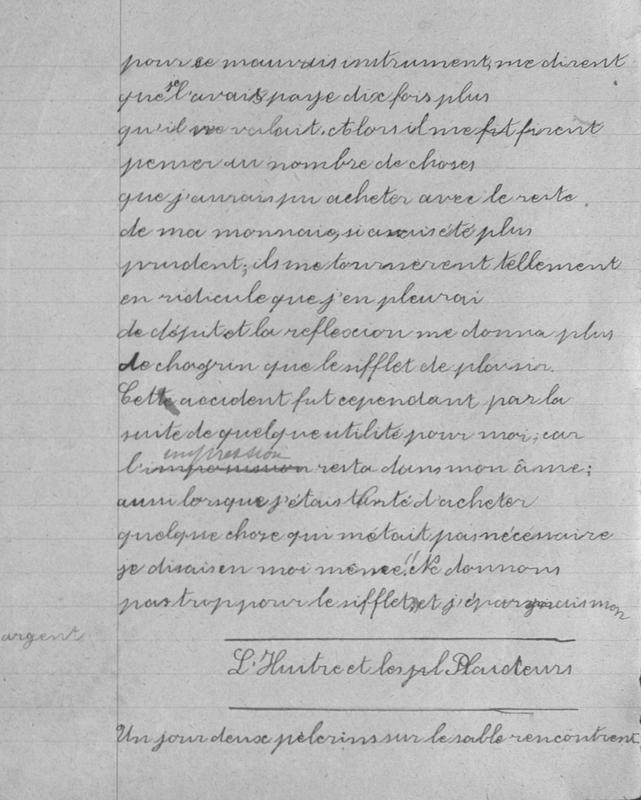 pour ce mauvais instrument, me dirent
que je l'avais paye dix fois plus
qu'il ne valait. Alors il me fit firent
penser au nombre de choses
que j'aurais pu acheter avec le reste
de ma monnaie, si avais été plus
prudent; ils me tournèrent tellement
en ridicule que j'en pleurai
de dépit et la reflexcion me donna plus
de chagrin que le sifflet de plaisir.
Cette accident fut cependant par la
suite de quelque utilité pour moi; car
impression
l' resta dans mon âme;
aussi lorsque j'étais tenté d'acheter
quelque chose qui m'était pas nécéssaire
je disais en moi même: "Ne donnons
pas trop pour le sifflet, et j'épargnais mon
argent
L'Huitre et les pl Plaideurs
Un jour deux pèlerins sur le sable rencontrent